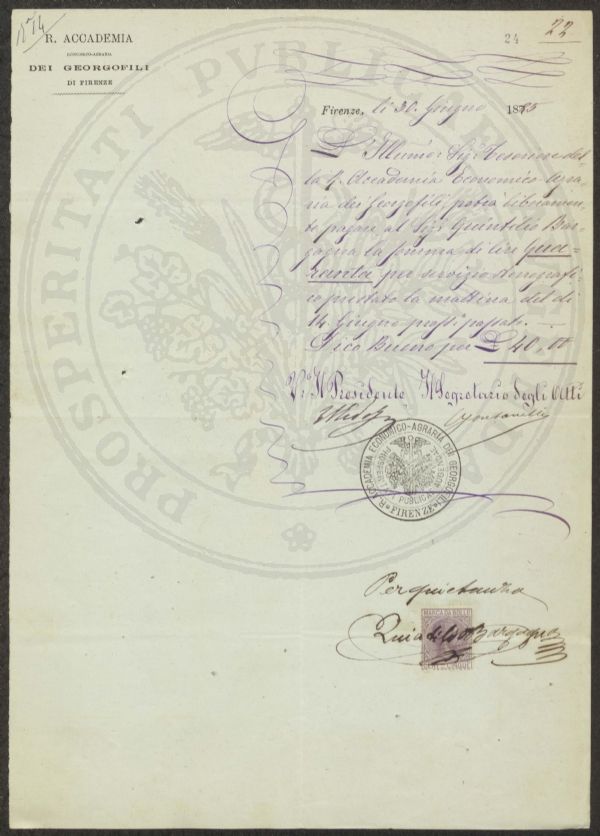 R. ACCADEMIA
ECONOMICO-AGRARIA
DEI GEORGOFILI
DI FIRENZE
24
22
Firenze, li 30. Giugno 1885
L'Illumo: Sigr Tesoriere del
la R. Accademia Economico-Agra-
ria dei Georgofili, potrà liberamen-
te pagare al Sigr Quintilio Bar-
gagna la somma di lire Qua-
ranta per servizio stenografi-
co prestato la mattina del dì
14. Giugno prossi passato.
Dico Buono per £ 40,00
Vo Il Presidente Il Segretario degli Atti
R. ACCADEMIA ECONOMICO-AGRARIA DEI GEORGOFILI
FIRENZE
Per quietanza
MARCA DA BOLLO
Quintilio Bargagna
PROSPERITATI PUBLICAE